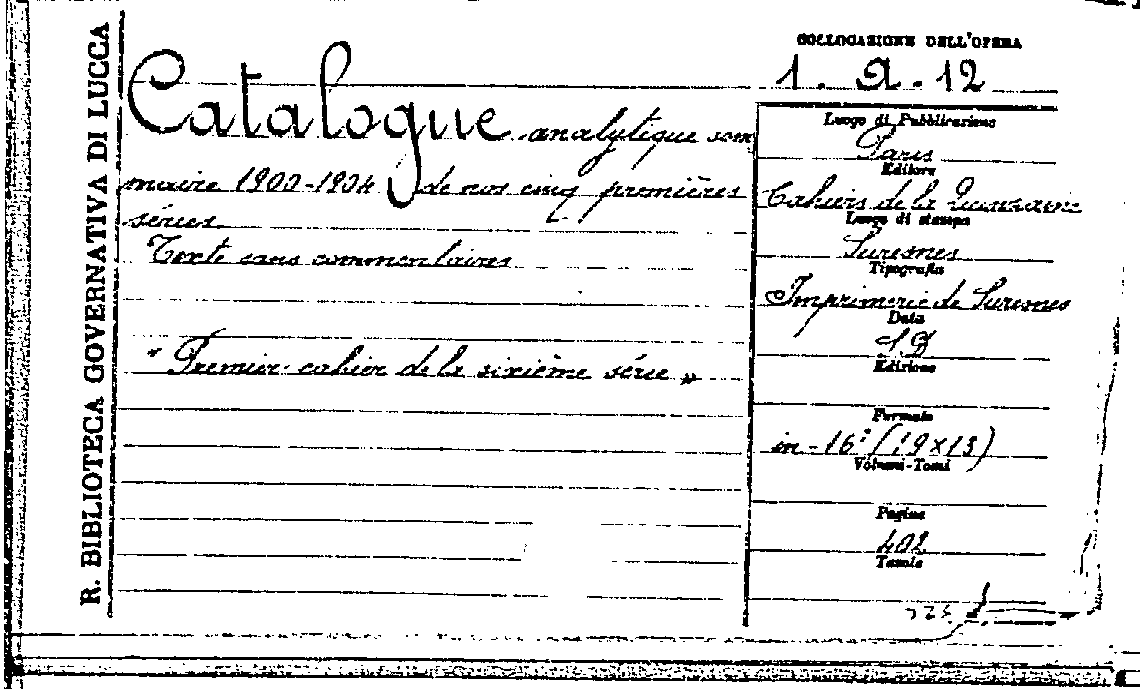 R. BIBLIOTECA GOVERNATIVA DI LUCCA
COLLOCAZIONE DELL'OPERA
1. a. 12
Catalogue analytique som
maire 1900-1904 de nos cinq premières
séries
Texte sans commentaires
" Premier cahier de la sixième série »
Luogo di Pubblicazione
Paris
Editore
Cahiers de la Quinzaine
Luogo di stampa
Suresnes
Tipografia
Imprimerie de Suresnes
Data
Edizione
Formato
in-16° (19×13)
Volumi-Tomi
Pagine
402
Tavole